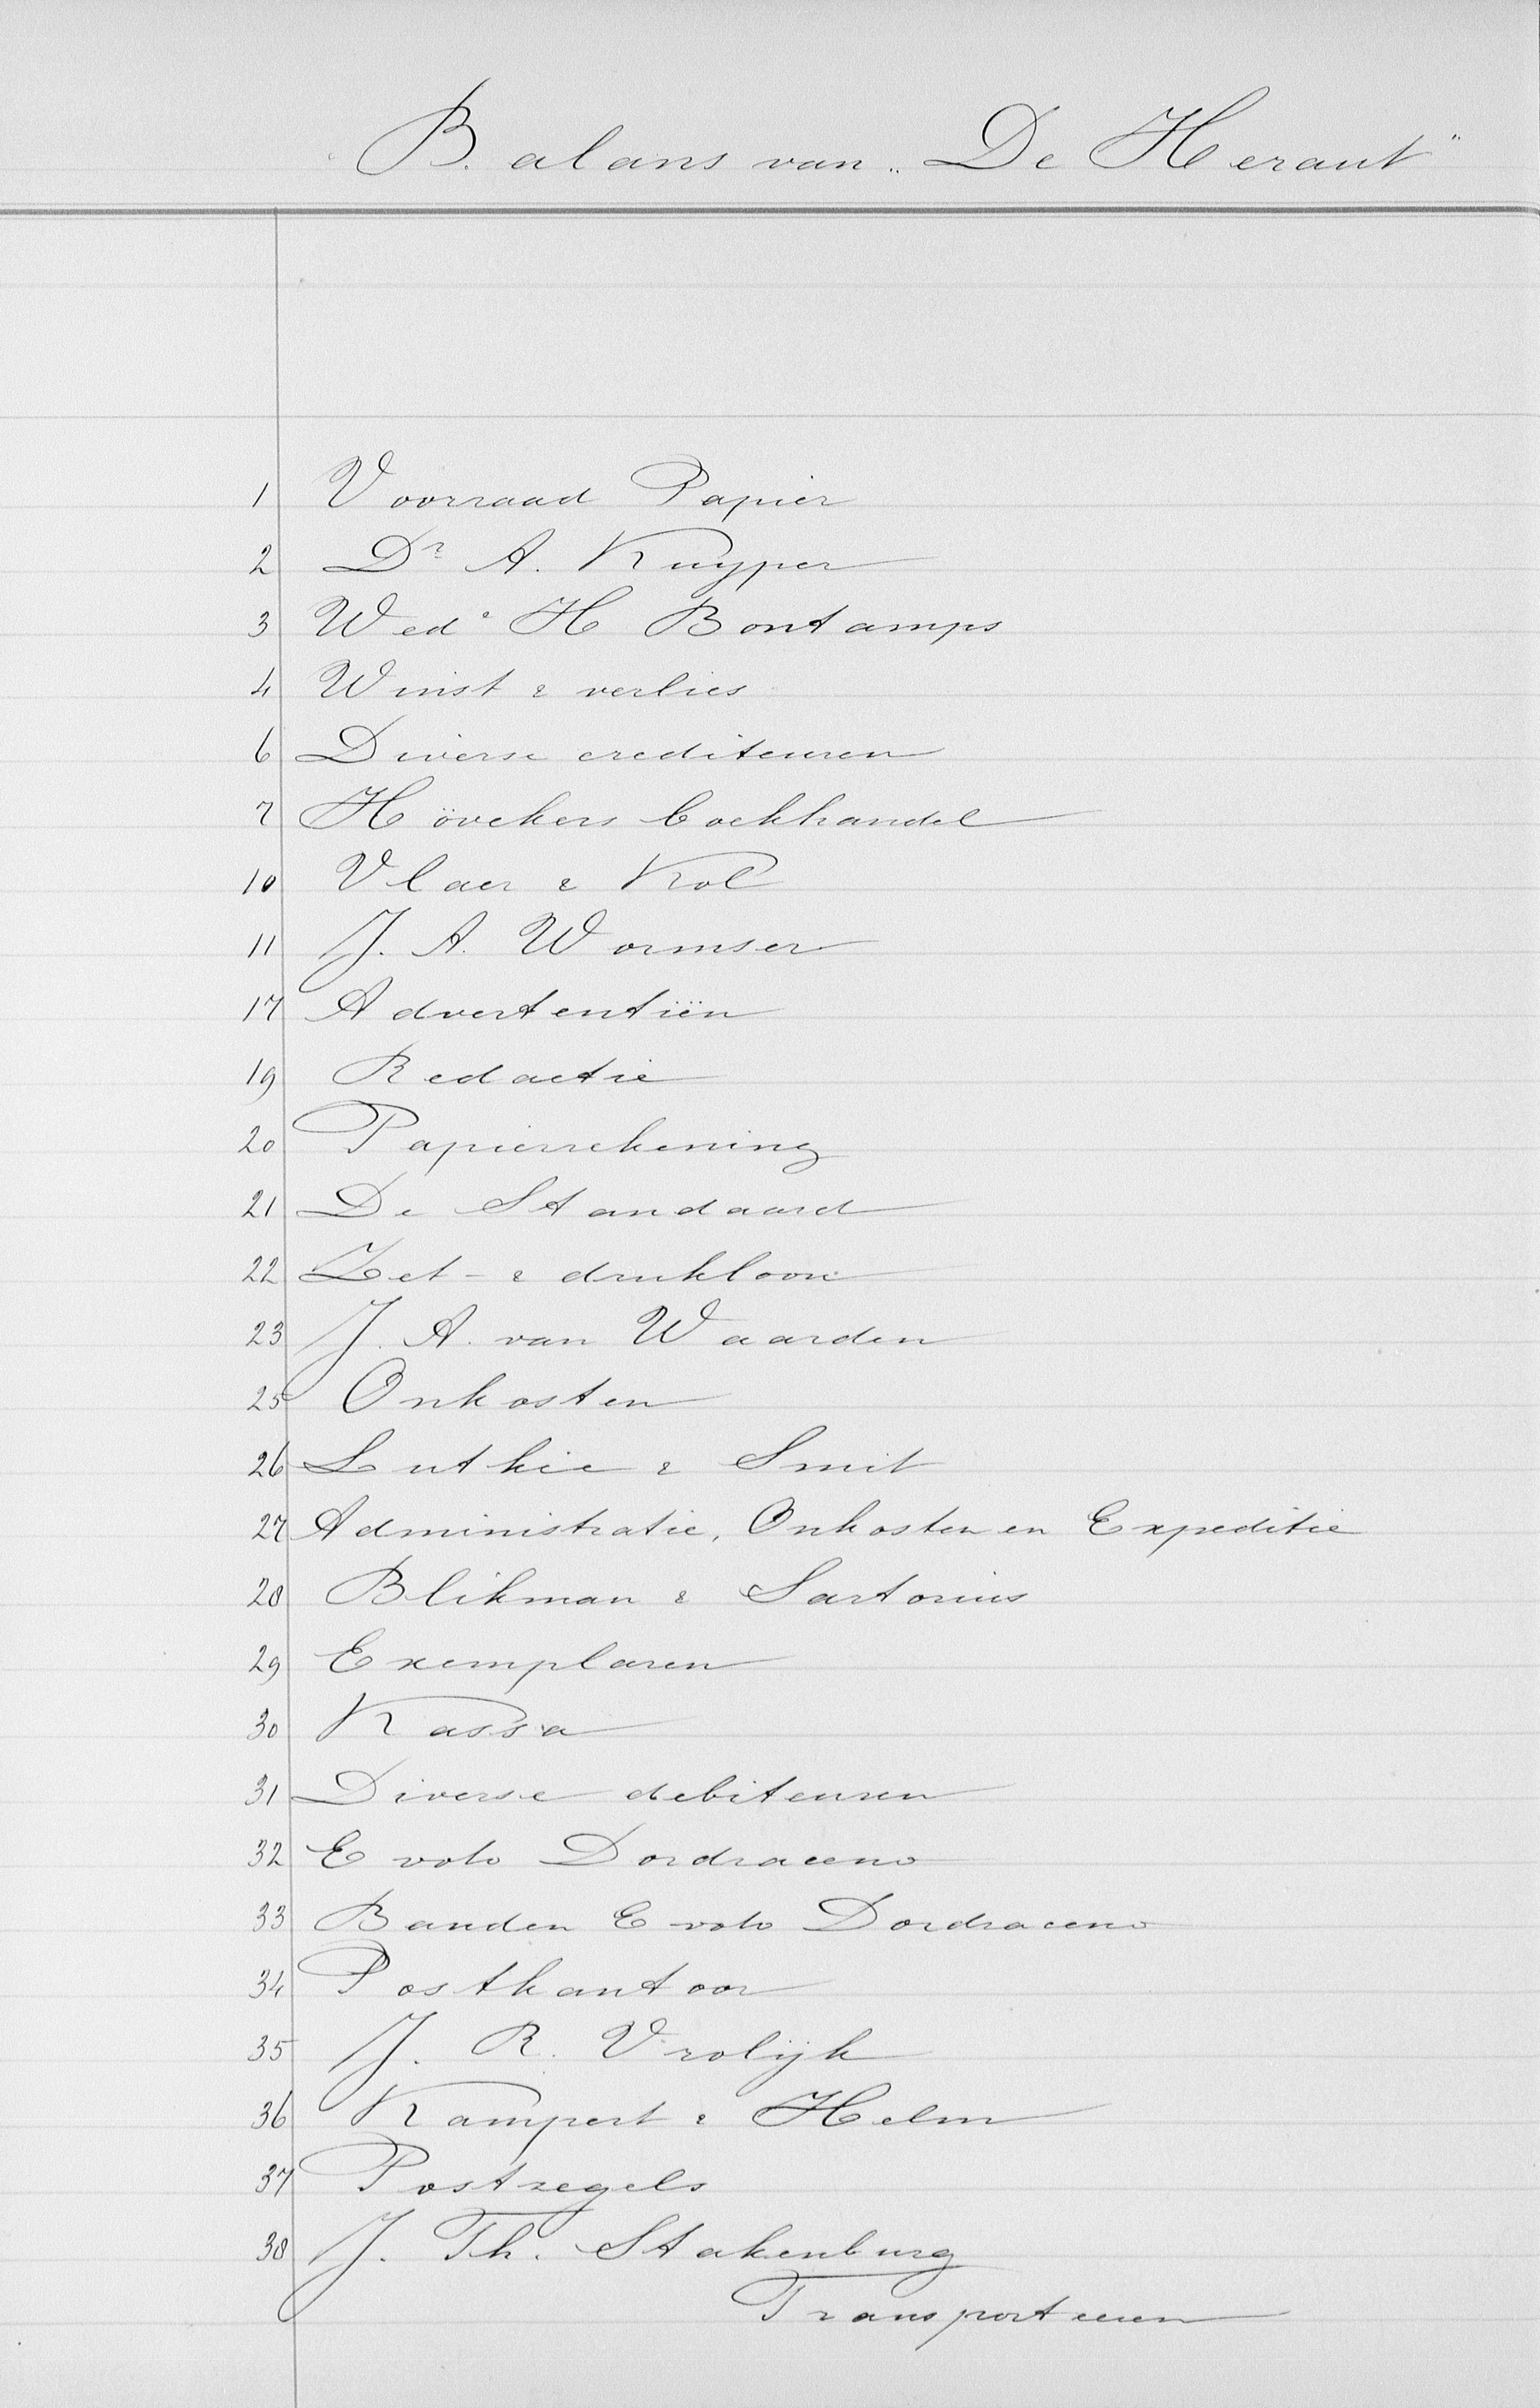 Balans van „De Heraut"
1 Voorraad Papier
2 Dr A. Kuyper
3 Wede H Bontamps
4 Winst & verlies
6 Diverse crediteuren
7 Hövekers boekhandel
10 Vlaer & Kol
11 J. A. Wormser
17 Advertentiën
19 Redactie
20 Papierrekening
21 De Standaard
22 Zet- & drukloon
23 J. A. van Waarden
25 Onkosten
26 Luthie & Smit
27 Administratie, Onkosten en Expeditie
28 Blikman & Sartorius
29 Exemplaren
30 Kassa
31 Diverse debiteuren
32 E voto Dordraceno
33 Banden E voto Dordraceno
34 Postkantoor
35 J. R. Vrolijk
36 Kampert & Helm
37 Postzegels
38 J. Th. Stakenburg
Transporteeren